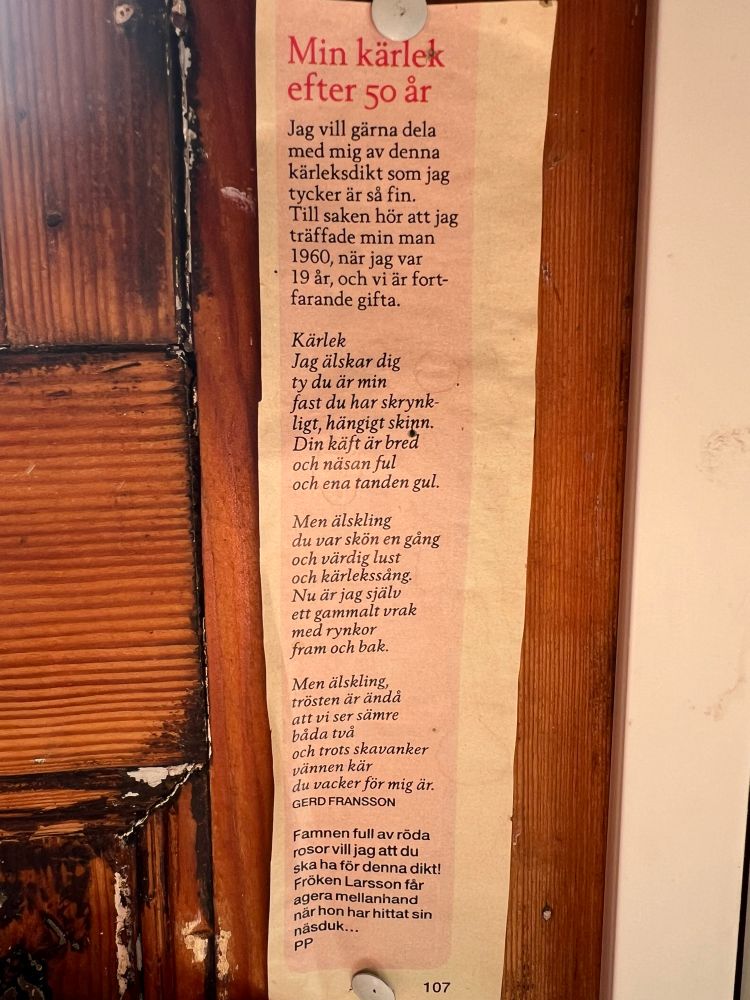 Min kärlek
efter 50 år
Jag vill gärna dela
med mig av denna
kärleksdikt som jag
tycker är så fin.
Till saken hör att jag
träffade min man
1960, när jag var
19 år, och vi är fort-
farande gifta.
Kärlek
Jag älskar dig
ty du är min
fast du har skrynk-
ligt, hängigt skinn.
Din käft är bred
och näsan ful
och ena tanden gul.
Men älskling
du var skön en gång
och värdig lust
och kärlekssång.
Nu är jag själv
ett gammalt vrak
med rynkor
fram och bak.
Men älskling,
trösten är ändå
att vi ser sämre
båda två
och trots skavanker
vännen kär
du vacker för mig är.
GERD FRANSSON
Famnen full av röda
rosor vill jag att du
ska ha för denna dikt!
Fröken Larsson får
agera mellanhand
när hon har hittat sin
näsduk...
PP
107